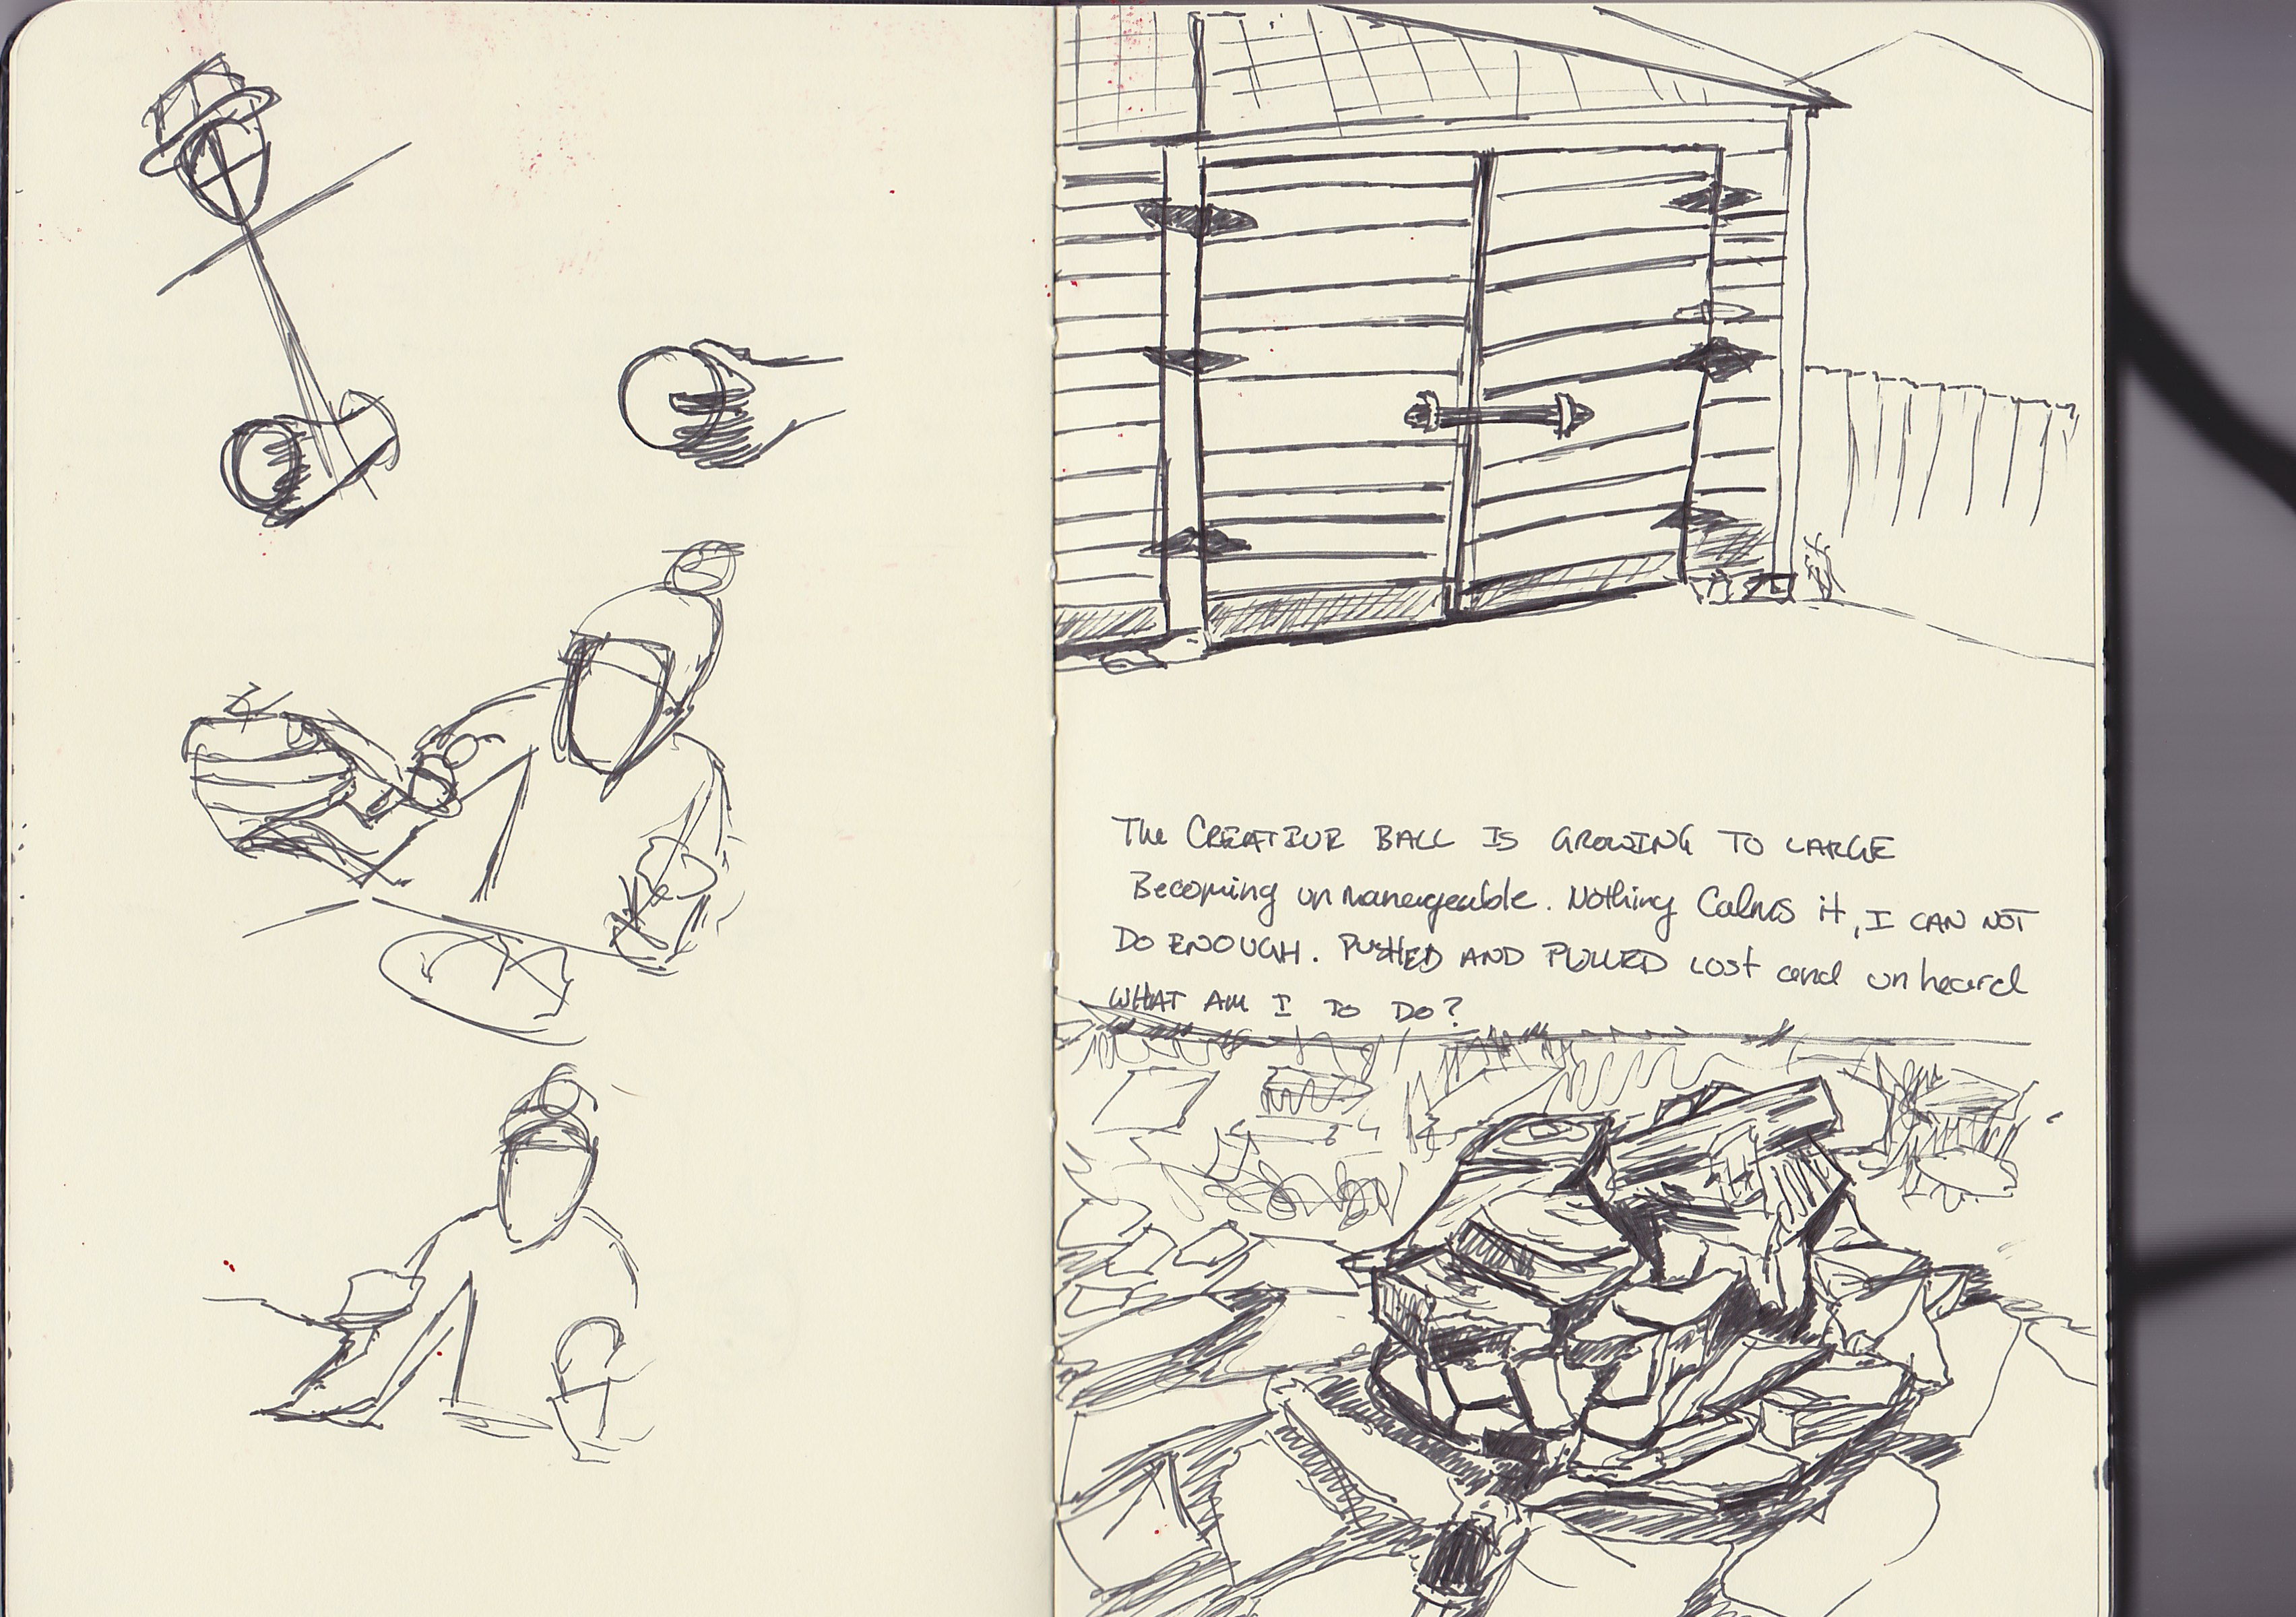 The CREATIVE BALL IS GROWING TO LARGE
Becoming unmanageable. Nothing Calms it, I CAN NOT
DO ENOUGH. PUSHED AND PULLED LOST and unheard
WHAT AM I TO DO?